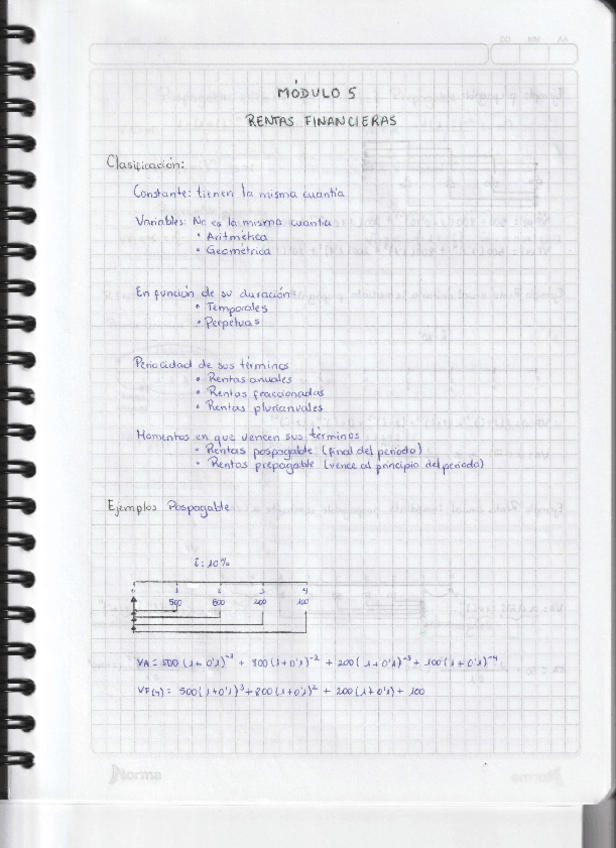 MÓDULO 5
RENTAS FINANCIERAS
Clasificación:
Constante: tienen la misma cuantía
Variables: No es la misma cuantía
• Aritmética
• Geométrica
En función de su duración:
• Temporales
• Perpetuas
Periocidad de sus términos
• Rentas anuales
• Rentas fraccionadas
• Rentas plurianuales
Momentos en que vencen sus términos
• Rentas pospagable (final del periodo)
• Rentas prepagable (vence al principio del periodo)
Ejemplos Pospagable
i: 10%
0 1 2 3 4
500 800 200 100
VA = 500 (1+0'1)⁻¹ + 800 (1+0'1)⁻² + 200 (1+0'1)⁻³ + 100 (1+0'1)⁻⁴
VF(4) = 500 (1+0'1)³ + 800 (1+0'1)² + 200 (1+0'1) + 100
Norma